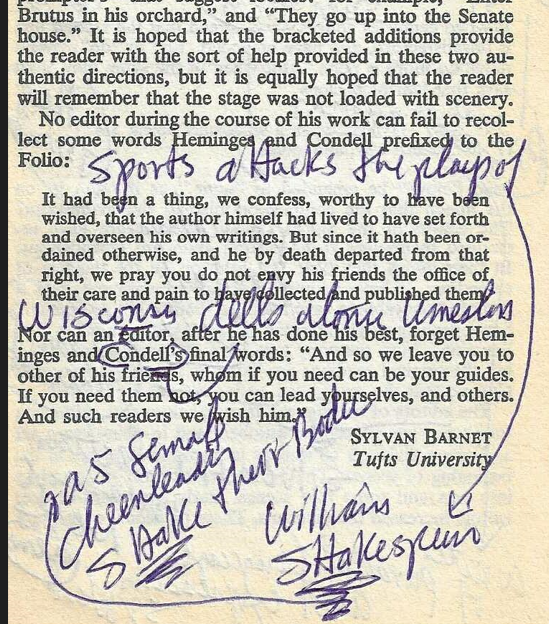 Brutus in his orchard," and "They go up into the Senate
house." It is hoped that the bracketed additions provide
the reader with the sort of help provided in these two au-
thentic directions, but it is equally hoped that the reader
will remember that the stage was not loaded with scenery.
No editor during the course of his work can fail to recol-
lect some words Heminges and Condell prefixed to the
Folio:
Sports attacks the plays of
It had been a thing, we confess, worthy to have been
wished, that the author himself had lived to have set forth
and overseen his own writings. But since it hath been or-
dained otherwise, and he by death departed from that
right, we pray you do not envy his friends the office of
their care and pain to have collected and published them.
Wisconsin dells atomic
Nor can an editor, after he has done his best, forget Hem-
inges and Condell's final words: "And so we leave you to
other of his friends, whom if you need can be your guides.
If you need them not, you can lead yourselves, and others.
And such readers we wish him."
SYLVAN BARNET
Tufts University
as female
cheerleaders
SHake their Bodie
William
SHakespeare